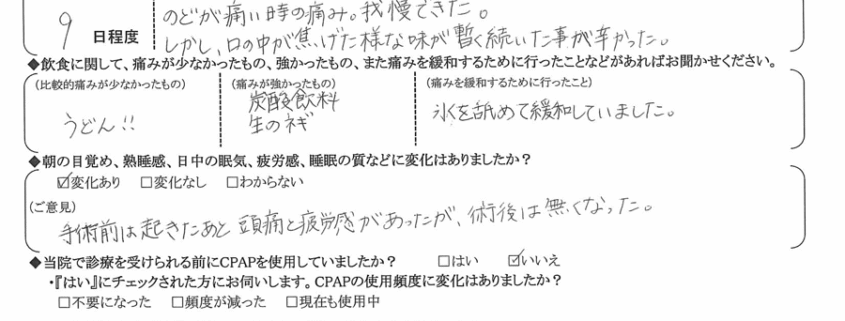 のどが痛い時の痛み。我慢できた。
9 日程度 しかし、口の中が焦げた様な味が暫く続いた事が辛かった。
◆飲食に関して、痛みが少なかったもの、強かったもの、また痛みを緩和するために行ったことなどがあればお聞かせください。
(比較的痛みが少なかったもの) (痛みが強かったもの) (痛みを緩和するために行ったこと)
うどん!! 炭酸飲料 氷を舐めて緩和していました。
生のネギ
◆朝の目覚め、熟睡感、日中の眠気、疲労感、睡眠の質などに変化はありましたか?
☑変化あり □変化なし □わからない
(ご意見)
手術前は起きたあと頭痛と疲労感があったが、術後は無くなった。
◆当院で診療を受けられる前にCPAPを使用していましたか? □はい ☑いいえ
・『はい』にチェックされた方にお伺いします。CPAPの使用頻度に変化はありましたか?
□不要になった □頻度が減った □現在も使用中